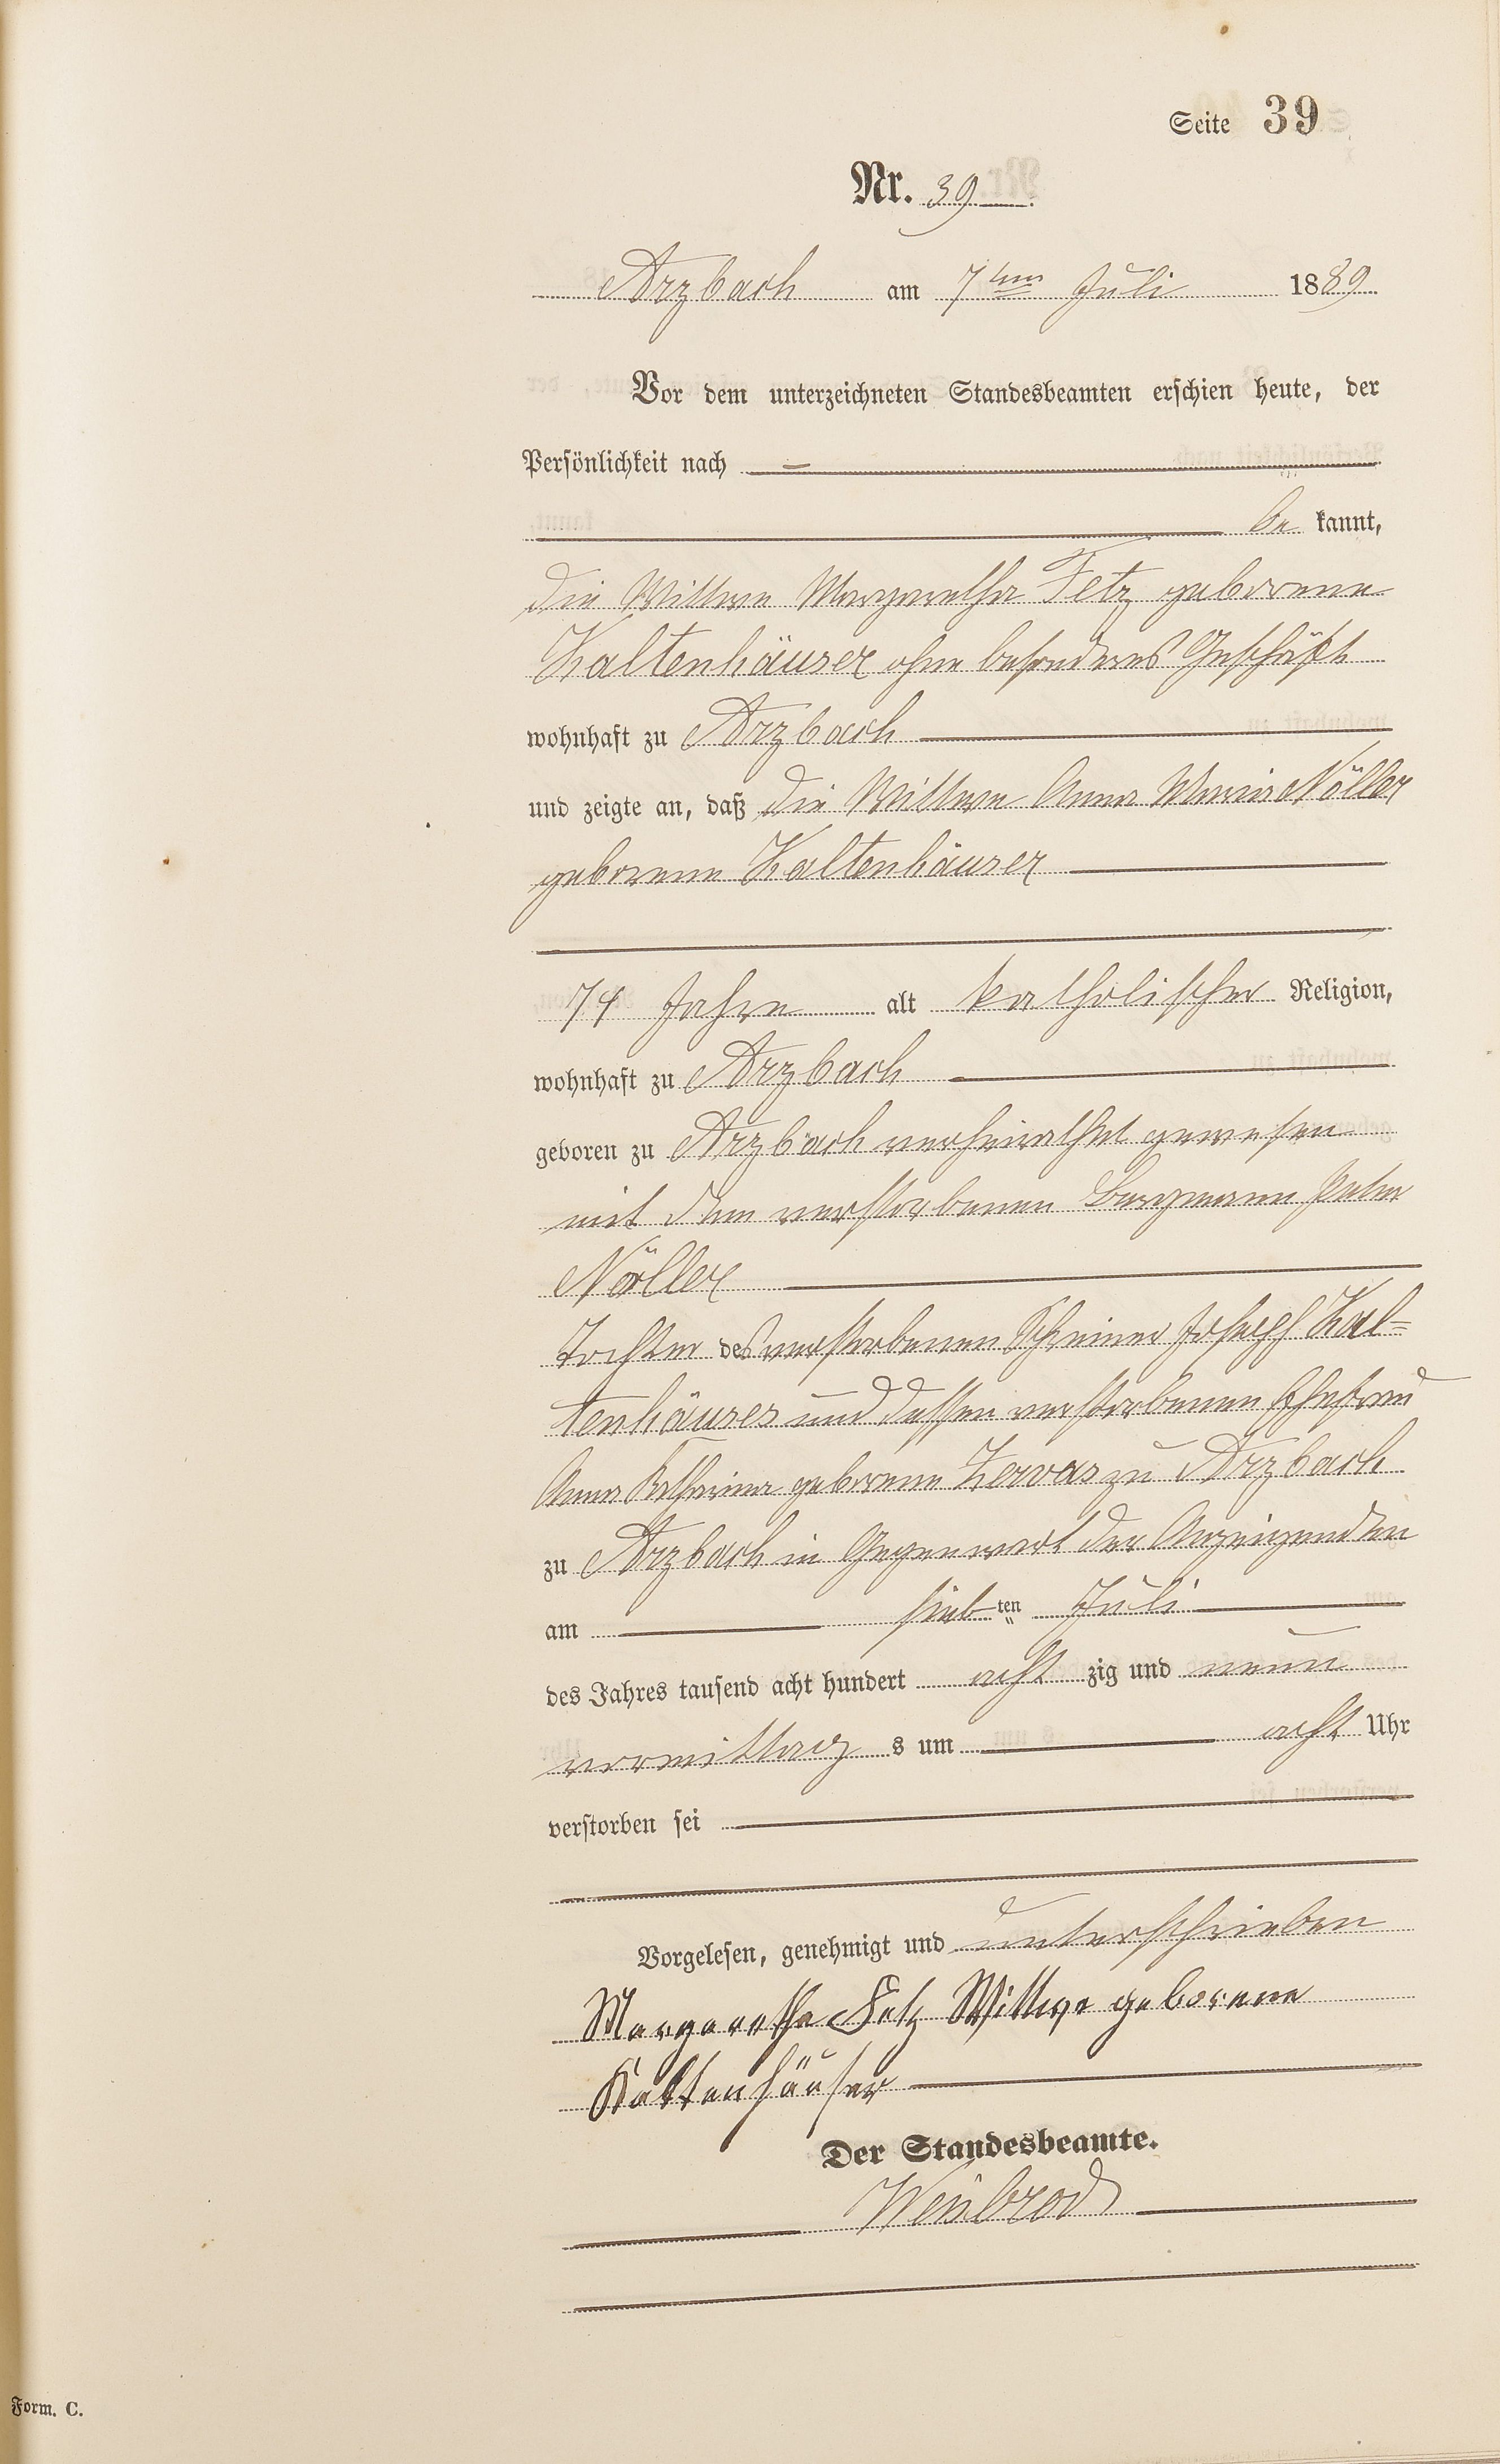 Seite 39
Nr. 39
Arzbach am 7ten Juli 1889
Vor dem unterzeichneten Standesbeamten erschien heute, der
Persönlichkeit nach
be kannt,
die Wittwe Margaretha Fetz geborene
Kaltenhäuser ohne besonderes Geschäft
wohnhaft zu Arzbach
und zeigte an, daß die Wittwe Anna Maria Nöller
geborene Kaltenhäuser
74 Jahre alt katholischer Religion,
wohnhaft zu Arzbach
geboren zu Arzbach verheirathet gewesen
mit dem verstorbenen Bergmann Peter
Nöller
Tochter des verstorbenen Schreiner Joseph Kal=
tenhäuser und dessen verstorbenen Ehefrau
Anna Katharina geborene Zervas zu Arzbach
zu Arzbach in Gegenwart der Anzeigenden
am sieb ten Juli
des Jahres tausend acht hundert acht zig und neun
vormittag s um acht Uhr
verstorben sei
Vorgelesen, genehmigt und unterschrieben
Margaretha Fetz Wittwe geborene
Kaltenhäuser
Der Standesbeamte.
Weisbrod
Form. C.